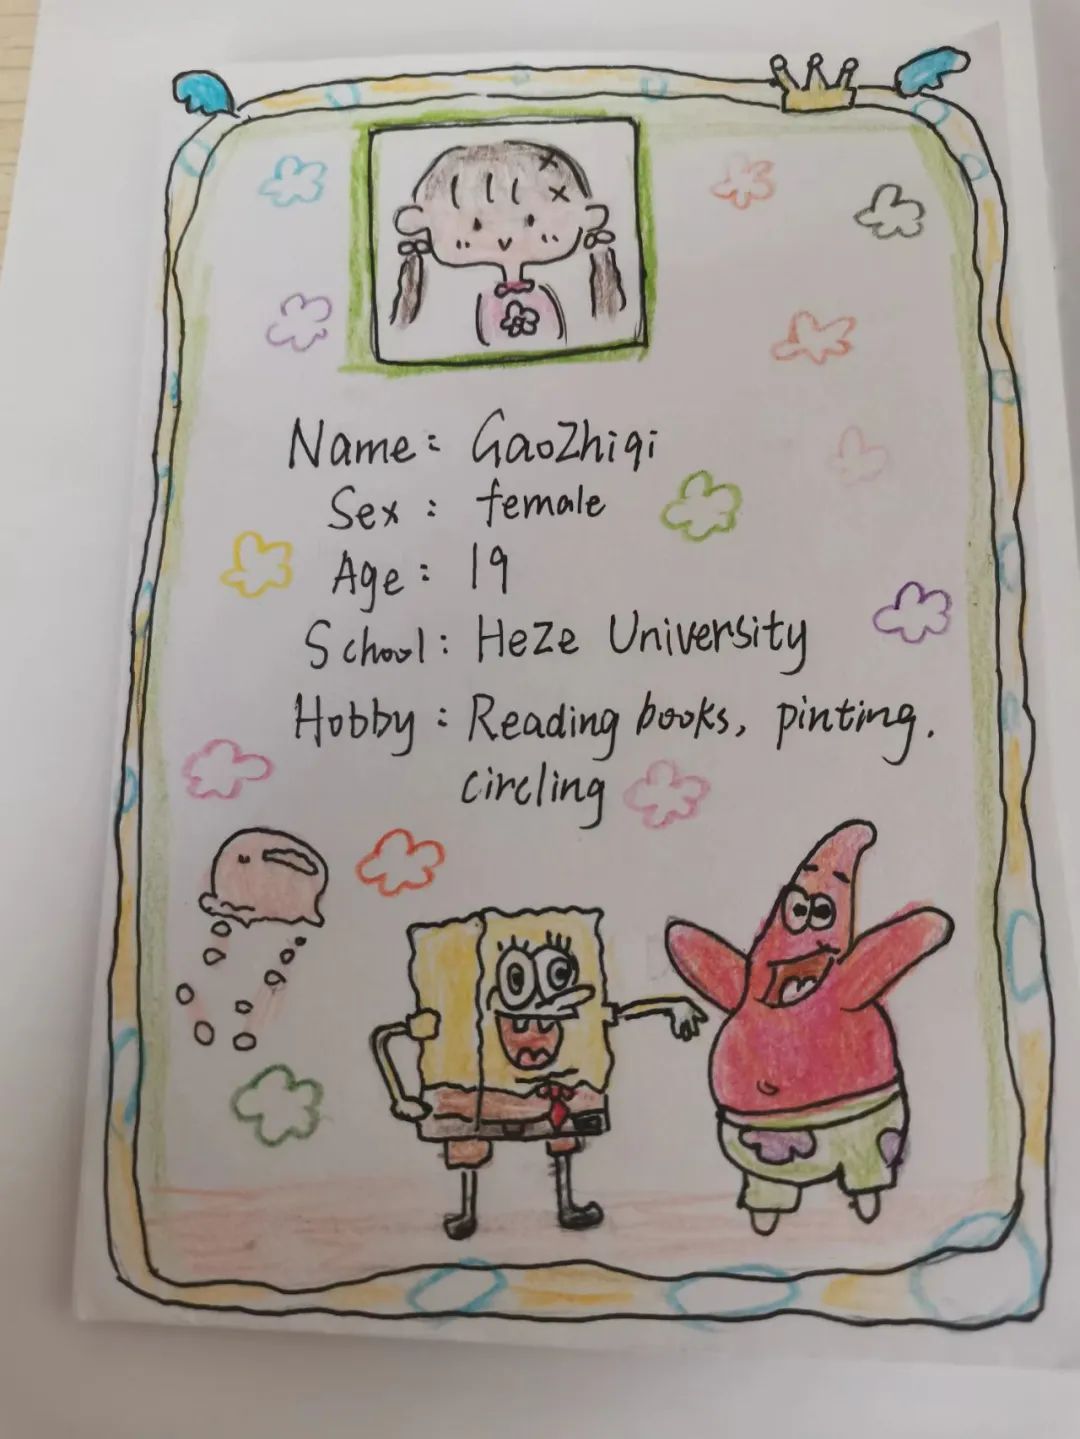 Name: GaoZhiqi
Sex: female
Age: 19
School: Heze University
Hobby: Reading books, pinting.
circling